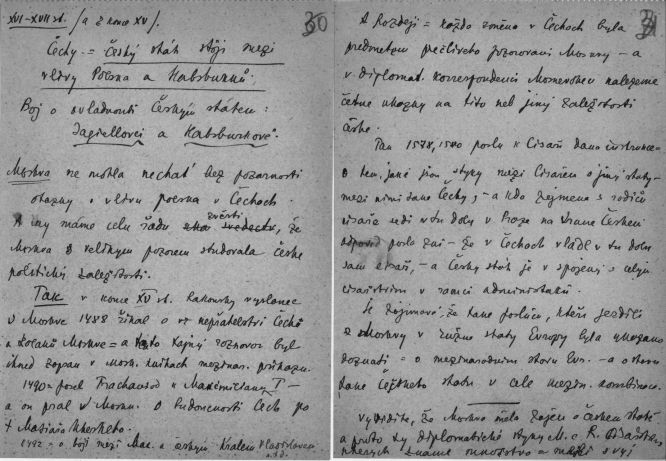 XVI–XVII st. (a z konce XV)
30
Čechy = český stát stojí mezi
vlivy Polska a Habsburků.
Boj o ovladnutí Českým státem:
Jagiellovci a Habsburkové.
Moskva ne mohla nechat bez pozornosti
otazky o vlivu polska v Čechach.
A my máme celu řadu zvěsti, že
Moskva s velikym pozorem studovala české
politický zaležitosti.
Tak v konce XV st. Rakousky vyslanec
v Moskve 1488 řikal o nepřatelstvi Čechů
a Polaků Moskve = a tento tajný rozhovor byl
ihned zapsan v Mosk. knihach mezinar. přikazu.
1490 = posel Trachaniot u Maximiliana I –
a on psal v Moskvu o budoucnosti Čech po
+ Matiaše Uherskeho.
1492 = o boji mezi Max. a českým Kralem Vladislavem
a.t.d.
31
A Později = každa změna v Čechach byla
predmetem pečliveho pozorovani Moskvy – a
v diplomat. korrespondenci Moskevskou nalezeme
četne ukazky na tito neb jiny zaležitosti
české.
Tak 1578, 1580 poslu k Cisaři dano instrukce
o tem, jake jsou styky mezi Cisařem a jiny staty –
mezi nimi jsou Čechy, – a kdo zejmena s rodiců
cisaře sedi v tu dobu v Praze na trune Českem
odpověd posla zni – že v Čechach vládl v tu dobu
sam cisař, – a Česky stát je v spojeny s celym
cisařstvim v ramci administraků.
Je zajimavé, že tane poslucu, kteři jezdili
z Moskvy v ružne staty Evropy byla ukazano
doznati = o mezinarodnim stavu Eur. – a o stavu
take Českeho statu v cele mezin. kombinace.
Vyvidite, že Moskva měla zajem o českem statě
a proto ty diplomatické styky M. c R.
kterych zname množstvo = měli svyj